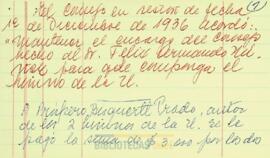 El Consejo en sesión de fecha (2)
1º de Diciembre de 1936 acordó:
"Mantener el encargo del Consejo
hecho al Sr. Félix Armando Nú-
ñez para que componga el
himno de la U.
A Brahero Disquertt Prado, autor
de los 2 himnos de la U. se le
pagó la suma de $ 3.000 por los dos
BIBLIOTECAS